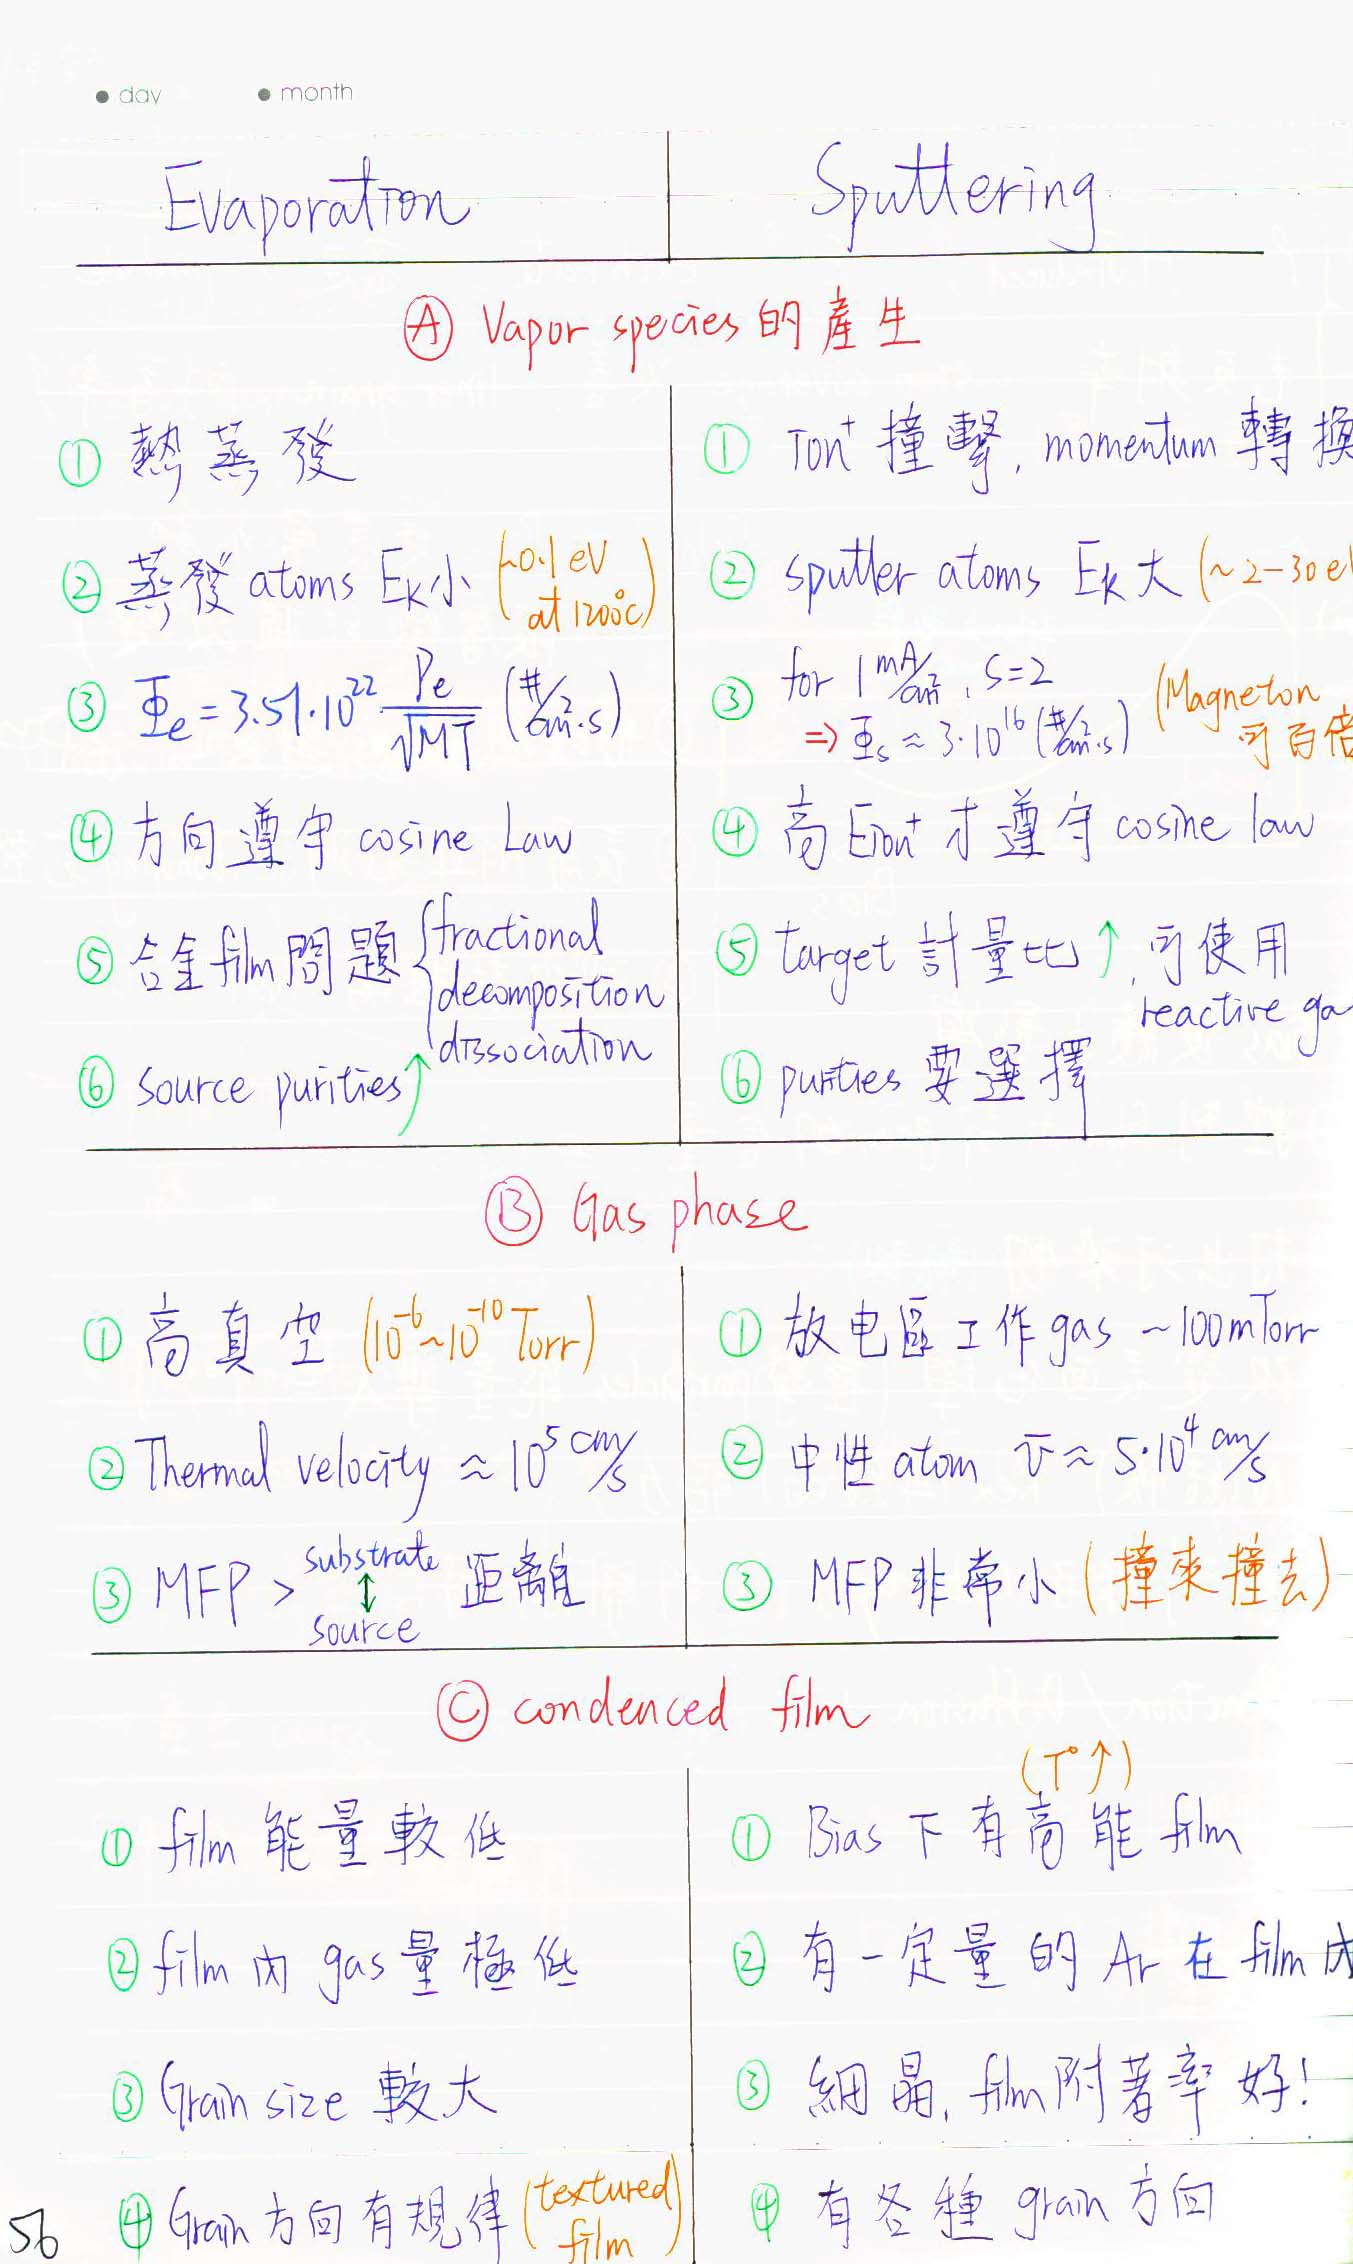 day month
Evaporation Sputtering
Ⓐ Vapor species 的產生
① 熱蒸發
① Ion⁺ 撞擊, momentum 轉換
② 蒸發 atoms Ek小 (~0.1 eV at 1200°C)
② sputter atoms Ek大 (~2-30 eV
③ Φe = 3.51·10²² Pe/√MT (#/cm²·s)
③ for 1 mA/cm², S=2
⇒ Φs ≈ 3·10¹⁶ (#/cm²·s) (Magneton 可百倍
④ 方向遵守 cosine Law
④ 高 Eion⁺ 才遵守 cosine law
⑤ 合金 film 問題 { fractional
decomposition
dissociation
⑤ target 計量比↑, 可使用
reactive ga
⑥ source purities↑
⑥ purities 要選擇
Ⓑ Gas phase
① 高真空 (10⁻⁶~10⁻¹⁰ Torr)
① 放电區工作 gas ~100mTorr
② Thermal velocity ≈ 10⁵ cm/s
② 中性 atom v̄ ≈ 5·10⁴ cm/s
③ MFP > substrate ↕ source 距離
③ MFP 非常小 (撞來撞去)
Ⓒ condenced film
(T°↑)
① film 能量較低
① Bias 下有高能 film
② film 內 gas 量極低
② 有一定量的 Ar 在 film 內
③ Grain size 較大
③ 細晶, film 附著率好!
④ Grain 方向有規律 (textured film)
④ 有各種 grain 方向
56